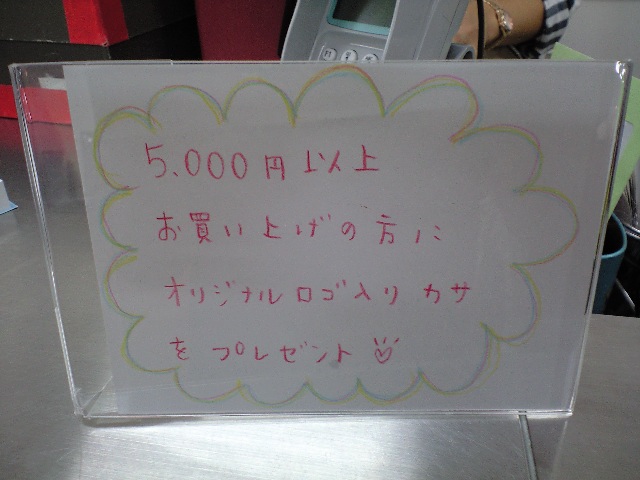 5.000円以上
お買い上げの方に
オリジナルロゴ入りカサ
をプレゼント♡